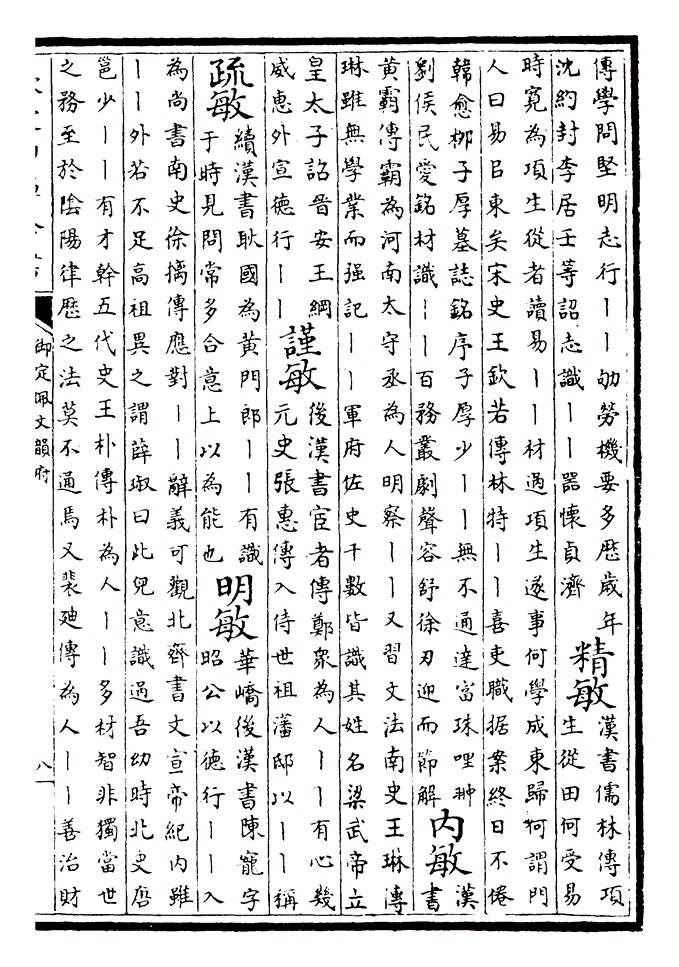 傳學問堅明志行丨丨劬勞機要多歴歲年
沈約封李居壬等詔志識丨丨器懷貞濟
精敏
漢書儒林傳項
生從田何受易
時寛為項生從者讀易丨丨材過項生遂事何學成東歸何謂門
人曰易已東矣宋史王欽若傳林特丨丨喜吏職据案終日不倦
韓愈栁子厚墓誌銘序子厚少丨丨無不通達富珠哩翀
劉侯民愛銘材識丨丨百務叢劇聲容舒徐刃迎而節解
內敏
漢
書
黄霸傳霸為河南太守丞為人明察丨丨又習文法南史王琳傳
琳雖無學業而强記丨丨軍府佐史千數皆識其姓名梁武帝立
皇太子詔晉安王綱
威惠外宣德行丨丨
謹敏
後漢書宦者傳鄭衆為人丨丨有心幾
元史張惠傳入侍世祖藩邸以丨丨稱
疏敏
續漢書耿國為黄門郎丨丨有識
于時見問常多合意上以為能也
明敏
華嶠後漢書陳寵字
昭公以德行丨丨入
為尚書南史徐摛傳應對丨丨辭義可觀北齊書文宣帝紀內雖
丨丨外若不足高祖異之謂薛琡曰此兒意識過吾幼時北史唐
邕少丨丨有才幹五代史王朴傳朴為人丨丨多材智非獨當世
之務至於陰陽律歴之法莫不通焉又裴廸傳為人丨丨善治財
御定佩文韻府
八